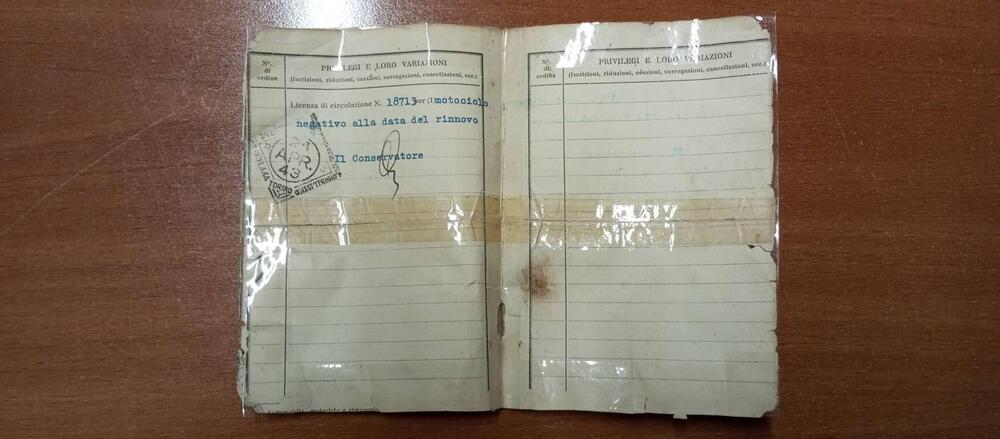 Nº.
di
ordine
PRIVILEGI E LORO VARIAZIONI
(Iscrizioni, riduzioni, cessioni, surrogazioni, cancellazioni, ecc.)
Licenza di circolazione N. 18713 per (1) motociclo
negativo alla data del rinnovo
Il Conservatore
APR.
43
TORINO
Automobile, motociclo o rimorchio
Nº.
di
ordine
PRIVILEGI E LORO VARIAZIONI
(Iscrizioni, riduzioni, cessioni, surrogazioni, cancellazioni, ecc.)